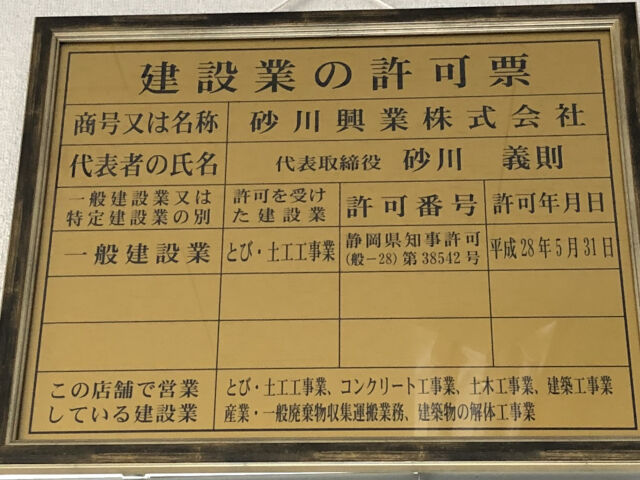 建設業の許可票
商号又は名称 砂川興業株式会社
代表者の氏名 代表取締役 砂川 義則
一般建設業又は
特定建設業の別
許可を受け
た建設業
許可番号
許可年月日
一般建設業
とび・土工工事業
静岡県知事許可
(般－28)第38542号
平成28年5月31日
この店舗で営業
している建設業
とび・土工工事業、コンクリート工事業、土木工事業、建築工事業
産業・一般廃棄物収集運搬業務、建築物の解体工事業